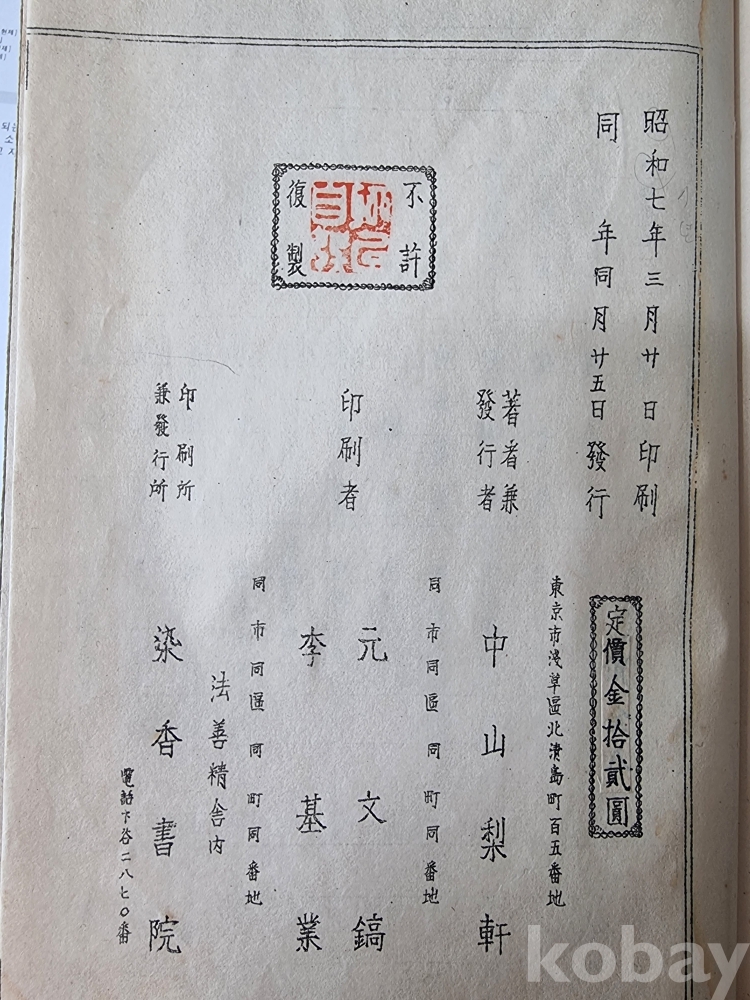 昭和七年三月廿日印刷
同年同月廿五日發行
定價金拾貳圓
不許
復製
著者兼
發行者
東京市淺草區北淸島町百五番地
中山梨軒
印刷者
同市同區同町同番地
元文鎬
李基業
印刷所
兼發行所
同市同區同町同番地
法善精舍內
染香書院
電話下谷二八七〇番
kobay